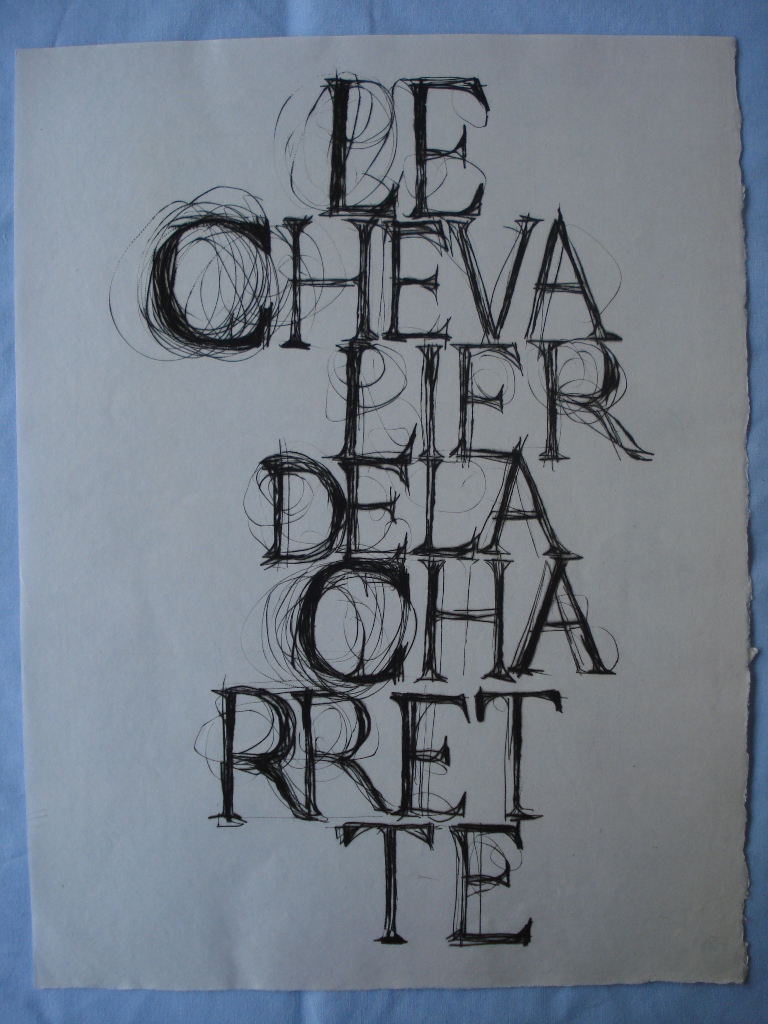 LE
CHEVA
LIER
DELA
CHA
RRET
TE